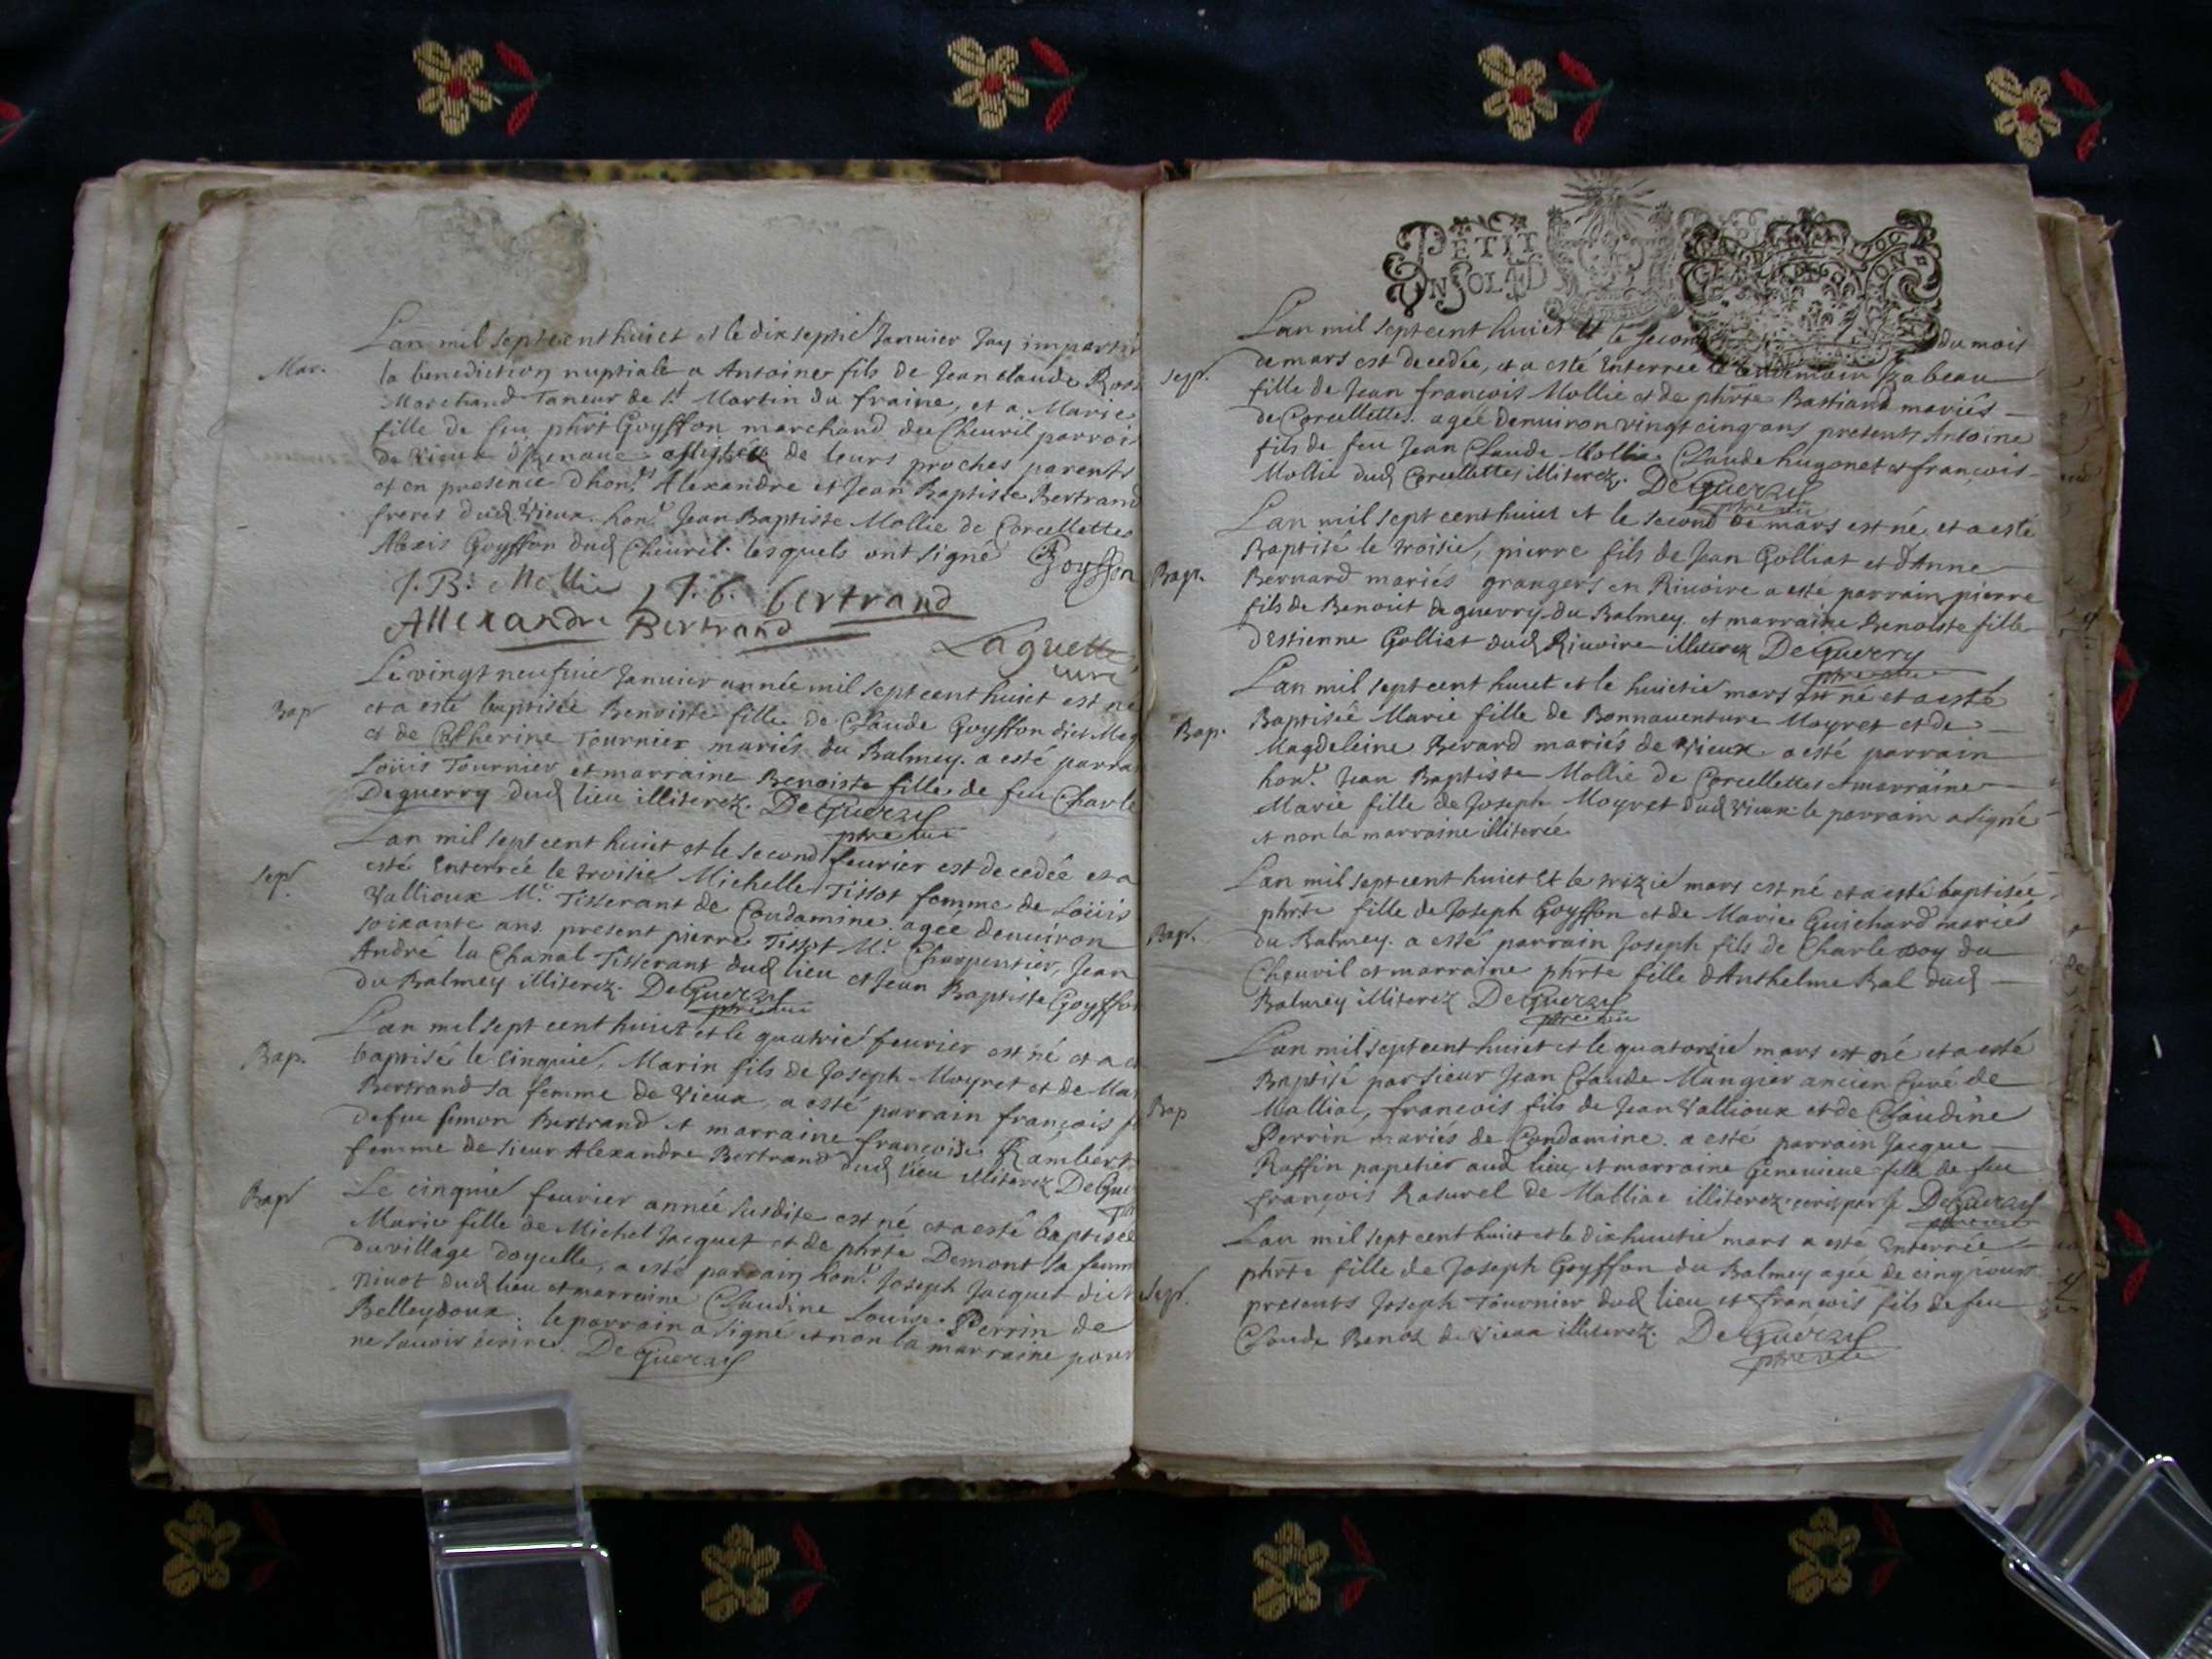 Mar.
Lan mil septcent huict et le dix septie Januier Jay imparti
la benediction nuptiale a Antoine fils de Jean claude Ros
Marchand Taneur de St Martin du fraine, et a Marie
fille de feu phrt Goyffon marchand du Cheuril parrois
de Vieux d'Izenaue assistés de leurs proches parents
et en presence d'hon. Alexandre et Jean Baptiste Bertrand
freres dud Vieux. hon. Jean Baptiste Mollie de Corcellettes
Alexis Goyffon dud Cheuril. lesquels ont signé Goyffon
J. B. Mollie J. b. bertrand
Allexandre Bertrand
Laguette
curé
Bap
Le vingt neufuie Januier année mil sept cent huict est ne
et a esté baptisée Benoiste fille de Claude Goyffon dict
et de Catherine Tournier mariés du Balmey. a esté parra
Loüis Tournier et marraine Benoiste fille de feu Charle
Deguerry dud lieu illiterez. DeGuerry
ptre vic
Sep.
Lan mil sept cent huict et le second feurier est decedée et a
esté Enterrée le troisie Michelle Tissot femme de Loüis
Vallioux Me. Tisserant de Condamine. agée denuiron
soixante ans. present pierre Tissot Me. Charpentier, Jean
André la Chanal Tisserant dud lieu et Jean Baptiste Goyffon
du Balmey illiterez. DeGuerry
ptre vic
Bap.
Lan mil sept cent huict et le quatrie feurier est né et a e
baptisé le Cinquie, Marin fils de Joseph Moyret et de Ma
Bertrand sa femme de Vieux, a esté parrain françois
de feu Simon Bertrand et marraine françoise Rambert
femme de sieur Alexandre Bertrand dud lieu illiterez DeGue
Bap
Le cinquie feurier année susdite est né et a esté baptisée
Marie fille de Michel Jacquet et de phrte Demont sa femm
du village doycelle, a esté parrain hon. Joseph Jacquet dict
niuot dud lieu et marraine Claudine Louise Perrin de
Belleydoux: le parrain a signé et non la marraine pour
ne sauoir écrire. DeGuerry
PETIT
UN SOL
Sep.
Lan mil sept cent huict et le second du mois
de mars est decedée, et a esté Enterree le lendemain Izabeau
fille de Jean françois Mollie et de phrte Bastiand mariés
de Corcellettes. agée denuiron vingt cinq ans presents Antoine
fils de feu Jean Claude Mollie Claude hugonet et françois
Mollie dud Corcellettes illiterez. DeGuerry
ptre vic
Bap.
Lan mil sept cent huict et le second de mars est né et a esté
Baptisé le troisie, pierre fils de Jean Golliat et d'Anne
Bernard mariés grangers en Riuoire a esté parrain pierre
fils de Benoist deguerry du Balmey et marraine Benoiste fille
destienne Golliat dud Riuoire illiterez DeGuerry
ptre vic
Bap.
Lan mil sept cent huict et le huictie mars est né et a esté
Baptisée Marie fille de Bonnauenture Moyret et de
Magdeleine Berard mariés de Vieux a esté parrain
hon. Jean Baptiste Mollie de Corcellettes et marraine
Marie fille de Joseph Moyret dud Vieux. le parrain a signé
et non la marraine illiterée
Bap.
Lan mil sept cent huict Et le trizie mars est né et a esté baptisée
phrte fille de Joseph Goyffon et de Marie Guichard mariés
du Balmey. a esté parrain Joseph fils de Charle du
Cheuril et marraine phrte fille d'Anthelme Bal dud
Balmey illiterez DeGuerry
ptre vic
Bap
Lan mil sept cent huict et le quatorzie mars est né et a esté
Baptisé par sieur Jean Claude Mangier ancien Curé de
Malliac, françois fils de Jean Vallioux et de Claudine
Perrin mariés de Condamine. a esté parrain Jacque
Raffin papetier aud lieu, et marraine Geneuieue fille de feu
françois Rasurel de Malliac illiterez. ecris par je DeGuerry
ptre vic
Sep.
Lan mil sept cent huict et le dix huictie mars a esté Enterrée
phrte fille de Joseph Goyffon du Balmey agée de cinq jours
presents Joseph Tournier dud lieu et françois fils de feu
Claude Benoz de Vieux illiterez. DeGuerry
ptre vic